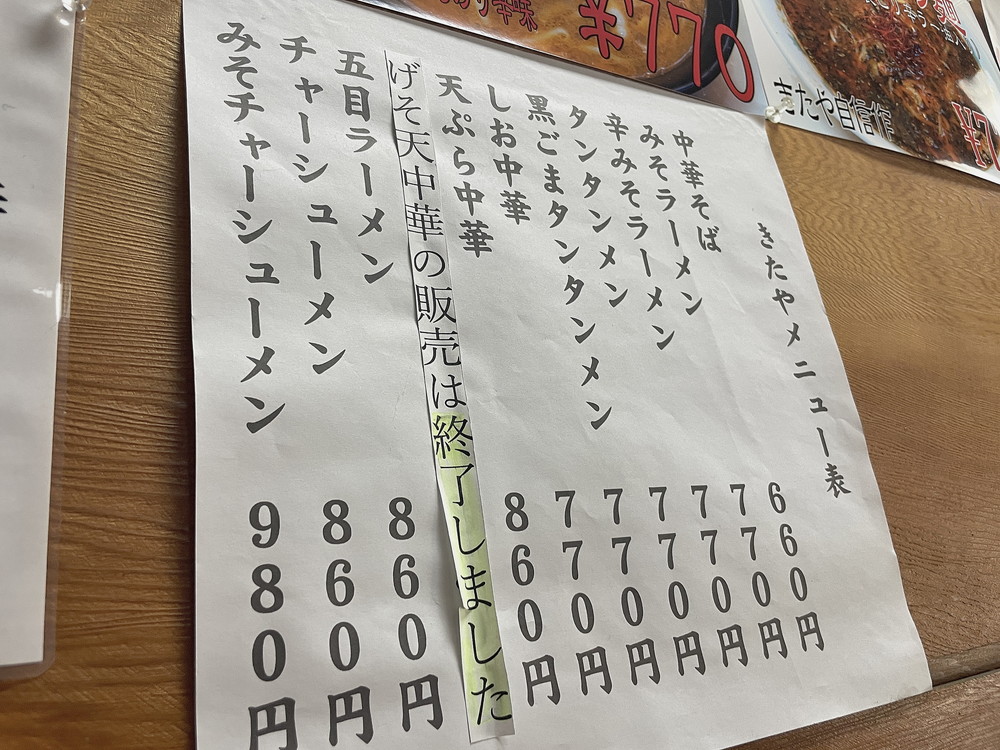 ¥770
きたや自信作
きたやメニュー表
中華そば 660円
みそラーメン 770円
辛みそラーメン 770円
タンタンメン 770円
黒ごまタンタンメン 770円
しお中華 770円
天ぷら中華 860円
げそ天中華の販売は終了しました
五目ラーメン 860円
チャーシューメン 860円
みそチャーシューメン 980円